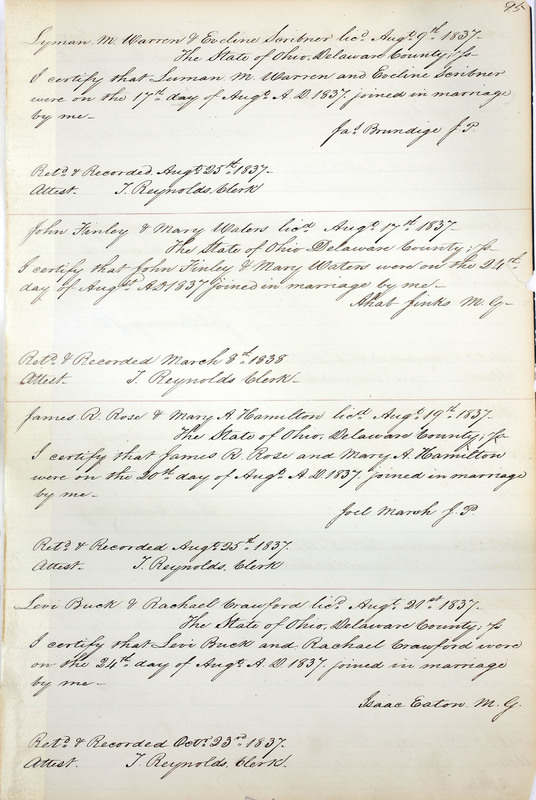 95
Lyman. M. Warren & Eveline Scribner licd. Augt. 9th. 1837-
The State of Ohio, Delaware County, ss-
I certify that Luman M. Warren and Eveline Scribner
were on the 17th. day of Augt. A.D. 1837. joined in marriage
by me-
Jas. Brundige J.P.
Retd. & Recorded. Augt. 25th. 1837-
Attest. T. Reynolds Clerk
John Finley & Mary Waters licd. Augt. 17th. 1837-
The State of Ohio Delaware County, ss-
I certify that John Finley & Mary Waters were on the 24th.
day of Augst. A.D. 1837 joined in marriage by me-
Ahab Jinks M.G-
Retd. & Recorded March 8th. 1838
Attest- T. Reynolds Clerk-
James R. Rose & Mary A. Hamilton licd. Augt. 19th. 1837-
The State of Ohio, Delaware County, ss-
I certify that James R. Rose and Mary A. Hamilton
were on the 20th. day of Augt. A.D. 1837. joined in marriage
by me-
Joel Marsh J.P.
Retd. & Recorded Augt. 25th. 1837.
Attest. T. Reynolds, Clerk
Levi Buck & Rachael Crawford licd. Augt. 21st. 1837-
The State of Ohio, Delaware County, ss
I certify that Levi Buck and Rachael Crawford were
on the 24th. day of Augt. A.D. 1837. joined in marriage
by me-
Isaac Eaton. M.G.
Retd. & Recorded Octr. 23rd. 1837.
Attest. T. Reynolds, Clerk.